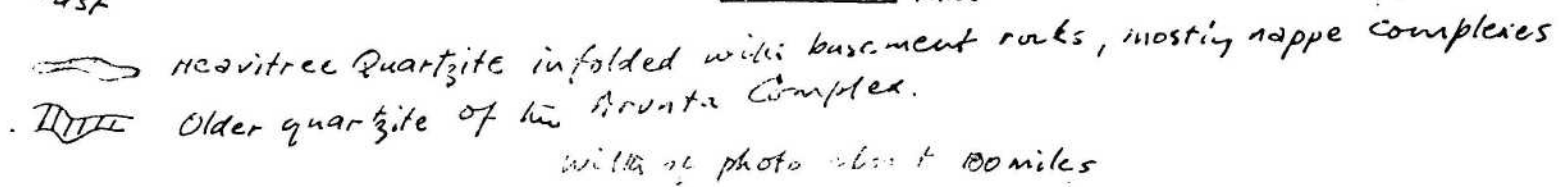 Heavitree Quartzite infolded with basement rocks, mostly nappe complexes
Older quartzite of the Arunta Complex.
width of photo about 100 miles